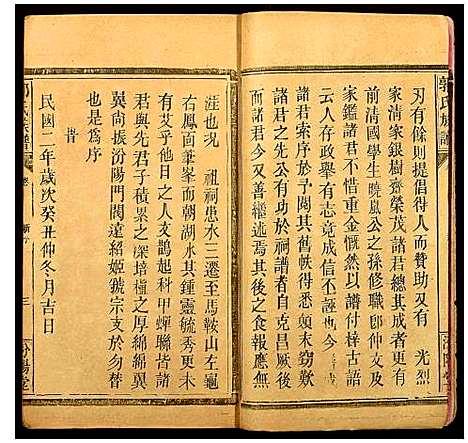 刃有餘則提倡得人而贊助又有 光烈
家清家銀樹齋榮茂諸君總其成者更有
前清國學生曉嵐公之孫修職郎仲文及
家鑑諸君不惜重金慨然以譜付梓古語
云人存政舉有志竟成信不誣也
諸君索序於予閱其舊帙得悉顛末竊歎
諸君之先公有功於祠譜者自克昌厥後
而諸君又善繼述焉其後之食報應
涯也况 祖祠患水三遷至馬鞍山左龜
右鳳面筆峯而朝湖水其鍾靈毓秀更未
有艾乎他日之人文鵲起科甲蟬聯皆諸
君與先君子積累之深培植之厚綿綿翼
翼向振汾陽門閥遠紹姬虢宗支於勿替
也是爲序
 旹
民國二年歲次癸丑仲冬月吉日
郭氏族譜
三